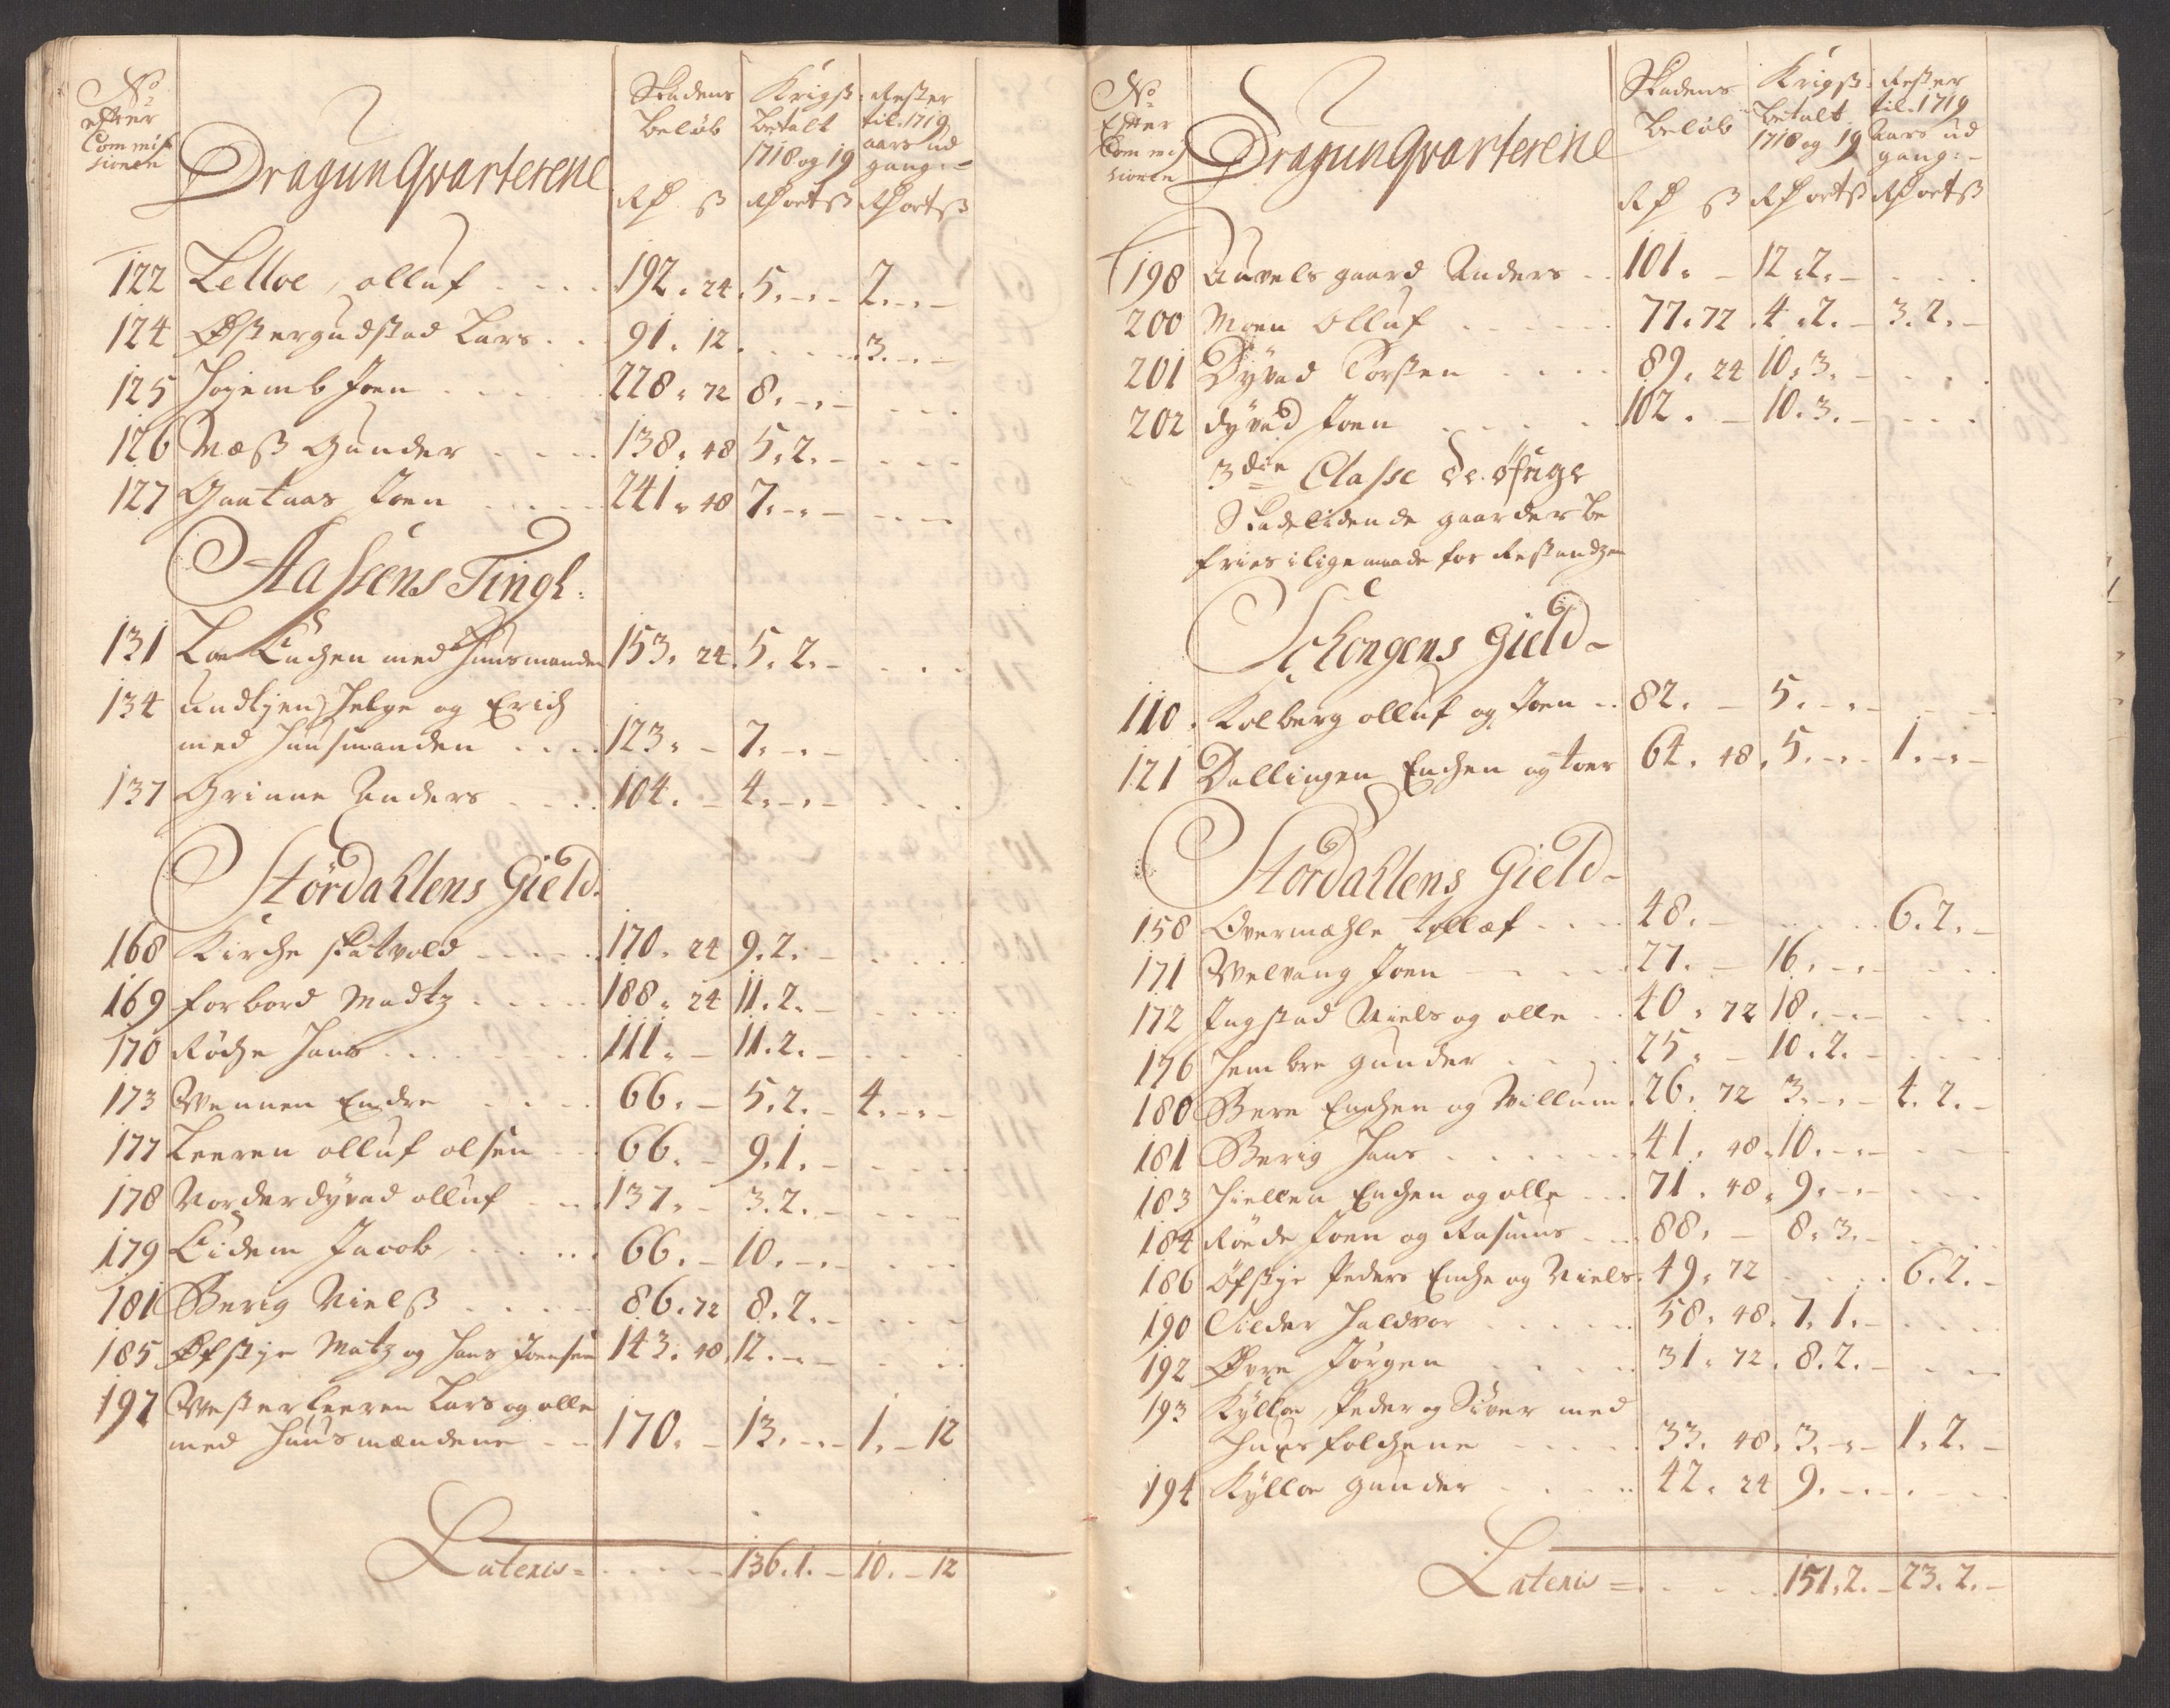 No
efter
Commis
sionen
DragunQvarterene
Skadens
beløb
Rd ß
Krigsß:
betalt
1718 og 19
Rd ort ß
Rester
til 1719
aars ud
gang:-
Rd ort ß
122 Lelloe, olluf .... 192. 24. 5. -. - 2. -. -
124 Østergudstad Lars .. 91. 12. .... 3. -. -
125 Hojemb Joen .... 228. 72 8. -. - ....
126 Næß Gunder .... 138. 48 5. 2. - ....
127 Gaataas Joen .... 241. 48 7. -. - ....
Aassens Tingl:
131 Loe Encken med Huusmanden 153. 24. 5. 2. - ...
134 undlien, Helge og Erich
med Huusmanden .... 123. - 7. -. - ...
137 Grinne Anders .... 104. - 4. -. - ...
Størdahlens Gield.
168 Kirche skatvold ..... 170. 24 9. 2. - ....
169 forbord Madtz .... 188. 24 11. 2. - ....
170 Røche Hans ...... 111. - 11. 2. - ....
173 Wennen Endre .... 66. - 5. 2. - 4. -. -
177 Leeren olluf olsen .. 66. - 9. 1. - ....
178 Norderdyvad olluf .... 137. - 3. 2. - ....
179 Eidem Jacob ..... 66. - 10. -. - ....
181 Berig Nielß .... 86. 72 8. 2. - ...
185 Øfstje Matz og Hans Joensen 143. 48. 12. -. - ...
197 Westerleeren Lars og olle
med Huusmændene .. 170. - 13. -. - 1. - 12
Lateris = ..... 136. 1. - 10. - 12
No
Efter
Commis
sionen
DragunQvarterene
Skadens
beløb
Rd ß
Krigsß:
betalt
1718 og 19
Rd ort ß
Rester
til 1719
Aars ud
gang:-
Rd ort ß
198 Auvelsgaard Anders .. 101. - 12. 2. - ...
200 Moen Olluf ..... 77. 72. 4. 2. - 3. 2. -
201 Dyvad Torsten .... 89. 24 10. 3. - ...
202 dyvad Joen .... 102. - 10. 3. - ...
3die Classe de øfrige
Skadelidende gaarder be
fries i lige maade for Restandzen
Schongens Gield-
110. Kolberg olluf og Joen .. 82. - 5. -. - ...
121 Dallingen Encken og toer 64. 48. 5. -. - 1. -. -
Stordahlens Gield-
158 Overmæhle tollæf .... 48. - .... 6. 2. -
171 Welvang Joen .... 27. - 16. -. - ...
172 Ingstad Niels og olle .. 40. 72 18. -. - ...
176 Hembre gunder .... 25. - 10. 2. - ....
180 Bere Encken og Willum. 26. 72 3. -. - 4. 2. -
181 Berig Hans ...... 41. 48. 10. -. - ...
183 Hiellen Encken og olle ... 71. 48. 9. -. - ...
184 Røede Joen og Rasmus ... 88. - 8. 3. - ...
186 Øfstje Peder Encke og Niels. 49. 72 .... 6. 2. -
190 Silder Haldvor ..... 58. 48. 7. 1. - ....
192 Øvre Jörgen .... 31. 72. 8. 2. - ...
193 Kylloe, Peder og Siver med
Huusfolchene .... 33. 48. 3. -. - 1. 2. -
194 Kylloe gunder .... 42. 24 9. -. - ...
Lateris = .... 151. 2. - 23. 2. -